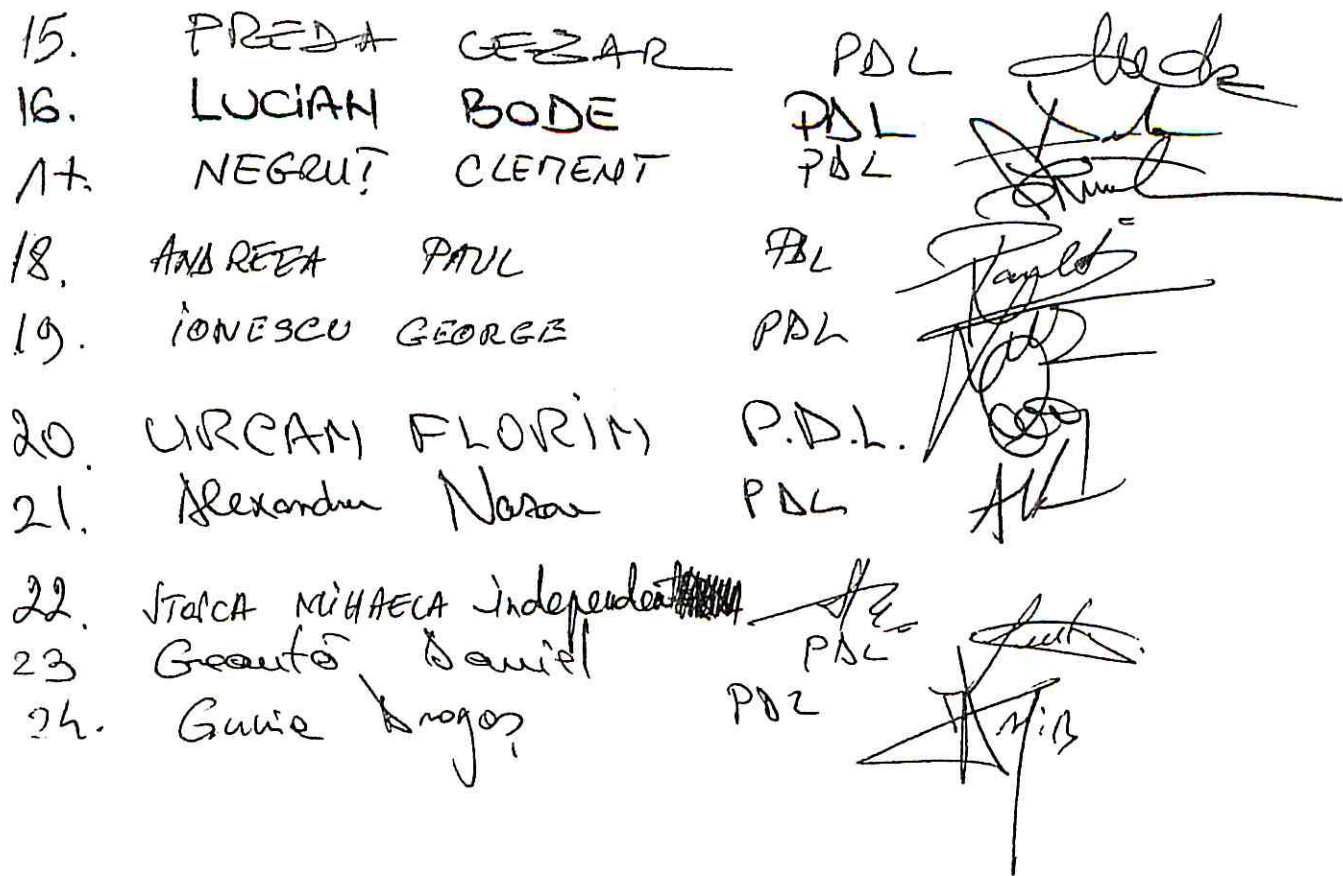 15. PREDA CEZAR PDL
16. LUCIAN BODE PDL
17. NEGRUȚ CLEMENT PDL
18. ANDREEA PAUL PDL
19. IONESCU GEORGE PDL
20. URCAN FLORIN P.D.L.
21. Alexandru Nazare PDL
22. STOICA MIHAELA independent
23 Geantă Daniel PDL
24. Gunia Dragoș PDL